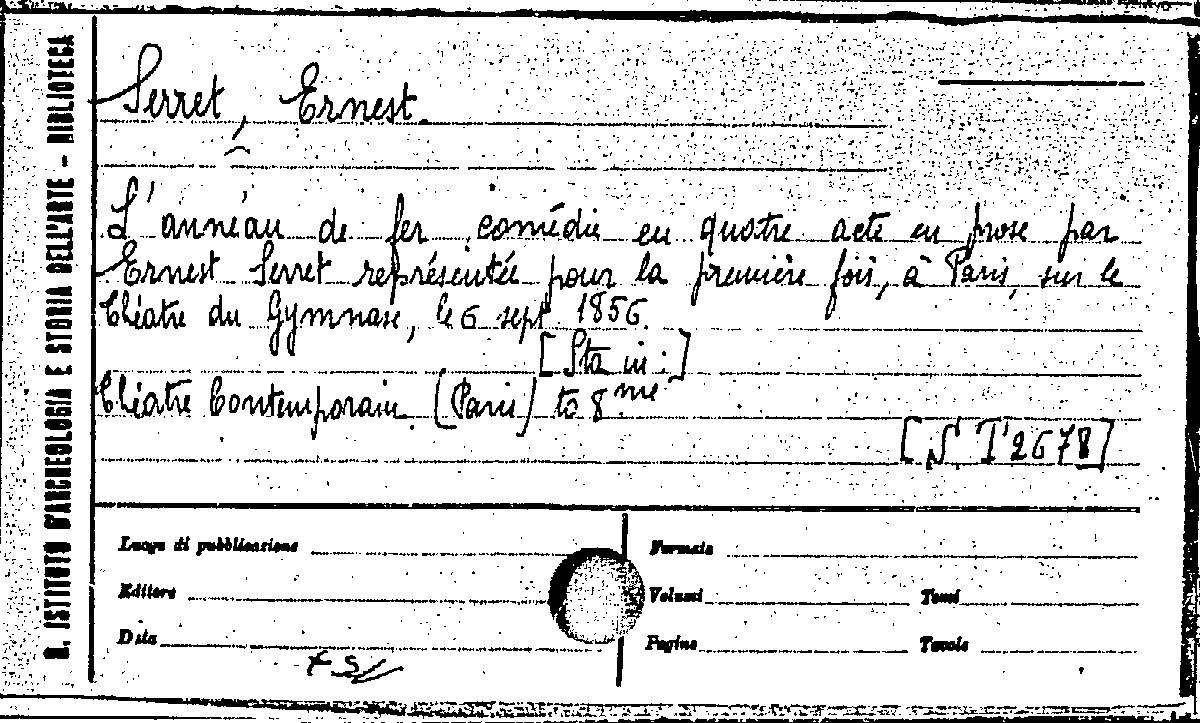 R. ISTITUTO D'ARCHEOLOGIA E STORIA DELL'ARTE - BIBLIOTECA
Serret, Ernest.
L'anneau de fer, comédie en quatre acte en prose par
Ernest Serret représentée pour la première fois, à Paris, sur le
théatre du Gymnase, le 6 sept 1856.
[Sta in:]
Théatre Contemporain. (Paris) to 8me
[N T'2678]
Luogo di pubblicazione
Formato
Editore
Volumi
Tomi
Data
Pagine
Tavole